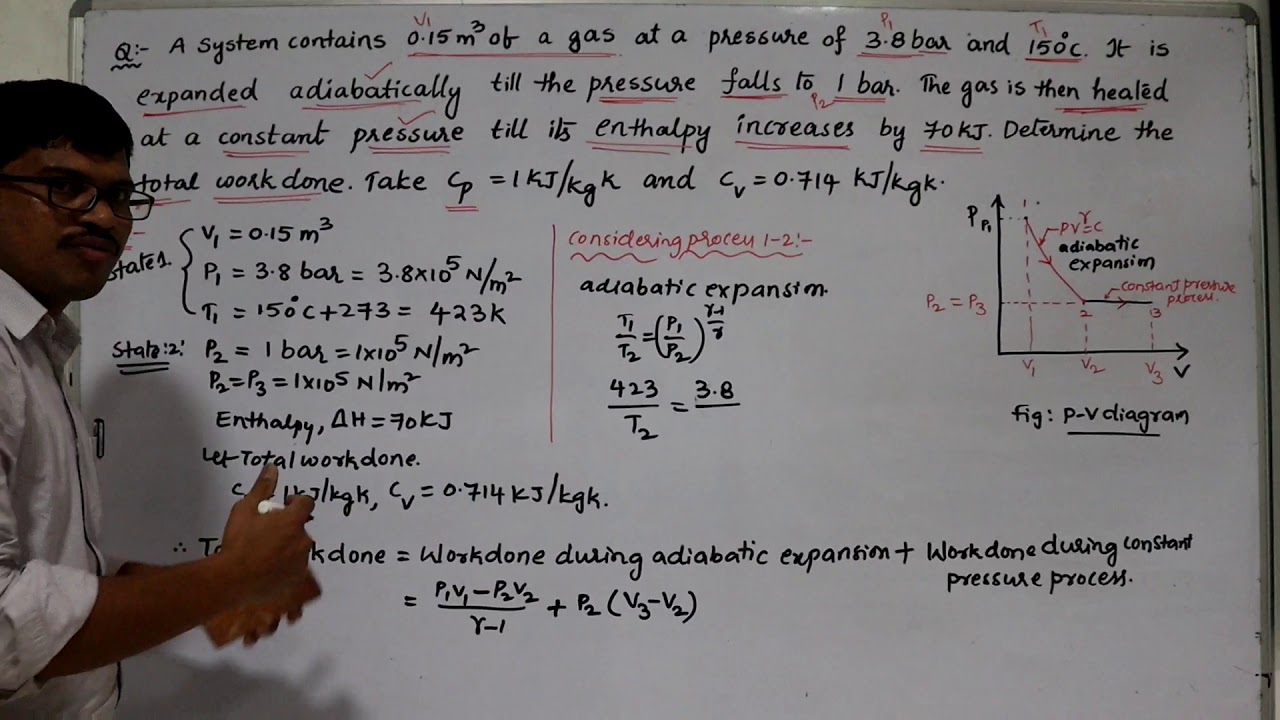 Q:- A system contains 0.15m³ of a gas at a pressure of 3.8 bar and 150°c. It is
V₁
P₁
T₁
expanded adiabatically till the pressure falls to 1 bar. The gas is then heated
P₂
at a constant pressure till its enthalpy increases by 70KJ. Determine the
total work done. Take Cp = 1 KJ/kgk and Cv = 0.714 KJ/kgk.
State 1
V₁ = 0.15 m³
P₁ = 3.8 bar = 3.8×10⁵ N/m²
T₁ = 150°c + 273 = 423k
State:2:
P₂ = 1 bar = 1×10⁵ N/m²
P₂=P₃ = 1×10⁵ N/m²
Enthalpy, ΔH = 70KJ
Let Total workdone.
1KJ/kgk, Cv = 0.714 KJ/kgk.
considering process 1-2:-
adiabatic expansion.
T₁/T₂ = (P₁/P₂)^(γ-1/γ)
423/T₂ = 3.8
P
P₁
1
PVᵞ=C
adiabatic
expansion
constant pressure
process.
P₂ = P₃
2
3
V₁
V₂
V₃
V
fig: P-V diagram
∴ workdone = Workdone during adiabatic expansion + Workdone during constant
pressure process.
= P₁V₁-P₂V₂/γ-1 + P₂(V₃-V₂)